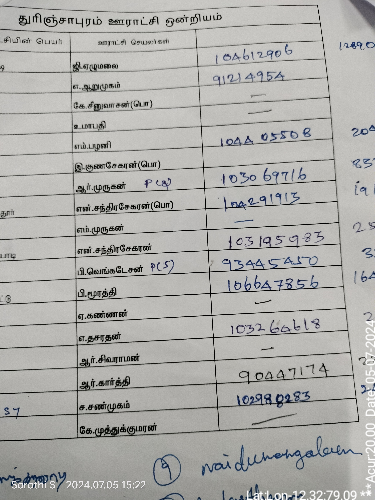 துரிஞ்சாபுரம் ஊராட்சி ஒன்றியம்
சியின் பெயர் ஊராட்சி செயலர்கள்
ஜி.ஏழுமலை 104612906
எ.ஆறுமுகம் 91214954
கே.சீனுவாசன்(பொ) —
உமாபதி
எம்.பழனி 104405508
இ.குணசேகரன்(பொ) —
ஆர்.முருகன் 103069716
என்.சந்திரசேகரன்(பொ) 104291913
எம்.முருகன் —
என்.சந்திரசேகரன் 103195983
பி.வெங்கடேசன் P(S) 93445450
பி.மூர்த்தி 106647856
ஏ.கண்ணன் —
எ.தசரதன் 103264618
ஆர்.சிவராமன் —
ஆர்.கார்த்தி 90447174
57 ச.சண்முகம் 102980283
கே.முத்துக்குமரன் —
9 naidumangalam
Sarathi S 2024,07.05 15:22
Lat:Lon-12.32:79.09 ** Acur:20.00 Date:05-07-2024